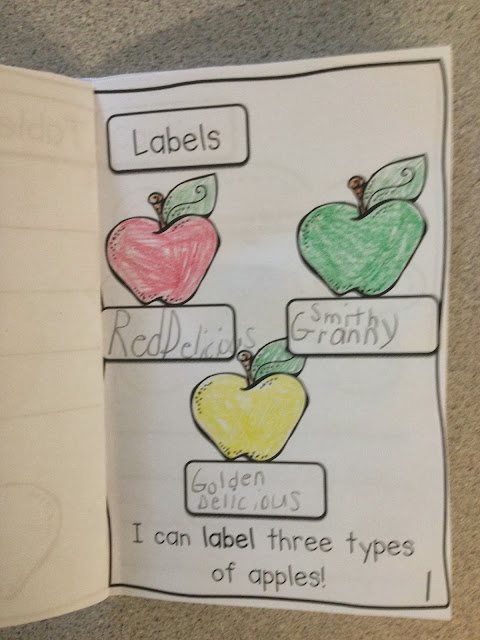 Labels
Red Delicious
Smith
Granny
Golden
Delicious
I can label three types
of apples!
1